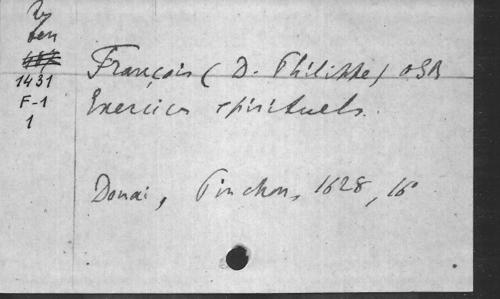 1431
F-1
1
François (D. Philippe) OSB
Exercices spirituels.
Douai, Pinchon, 1628, 16°